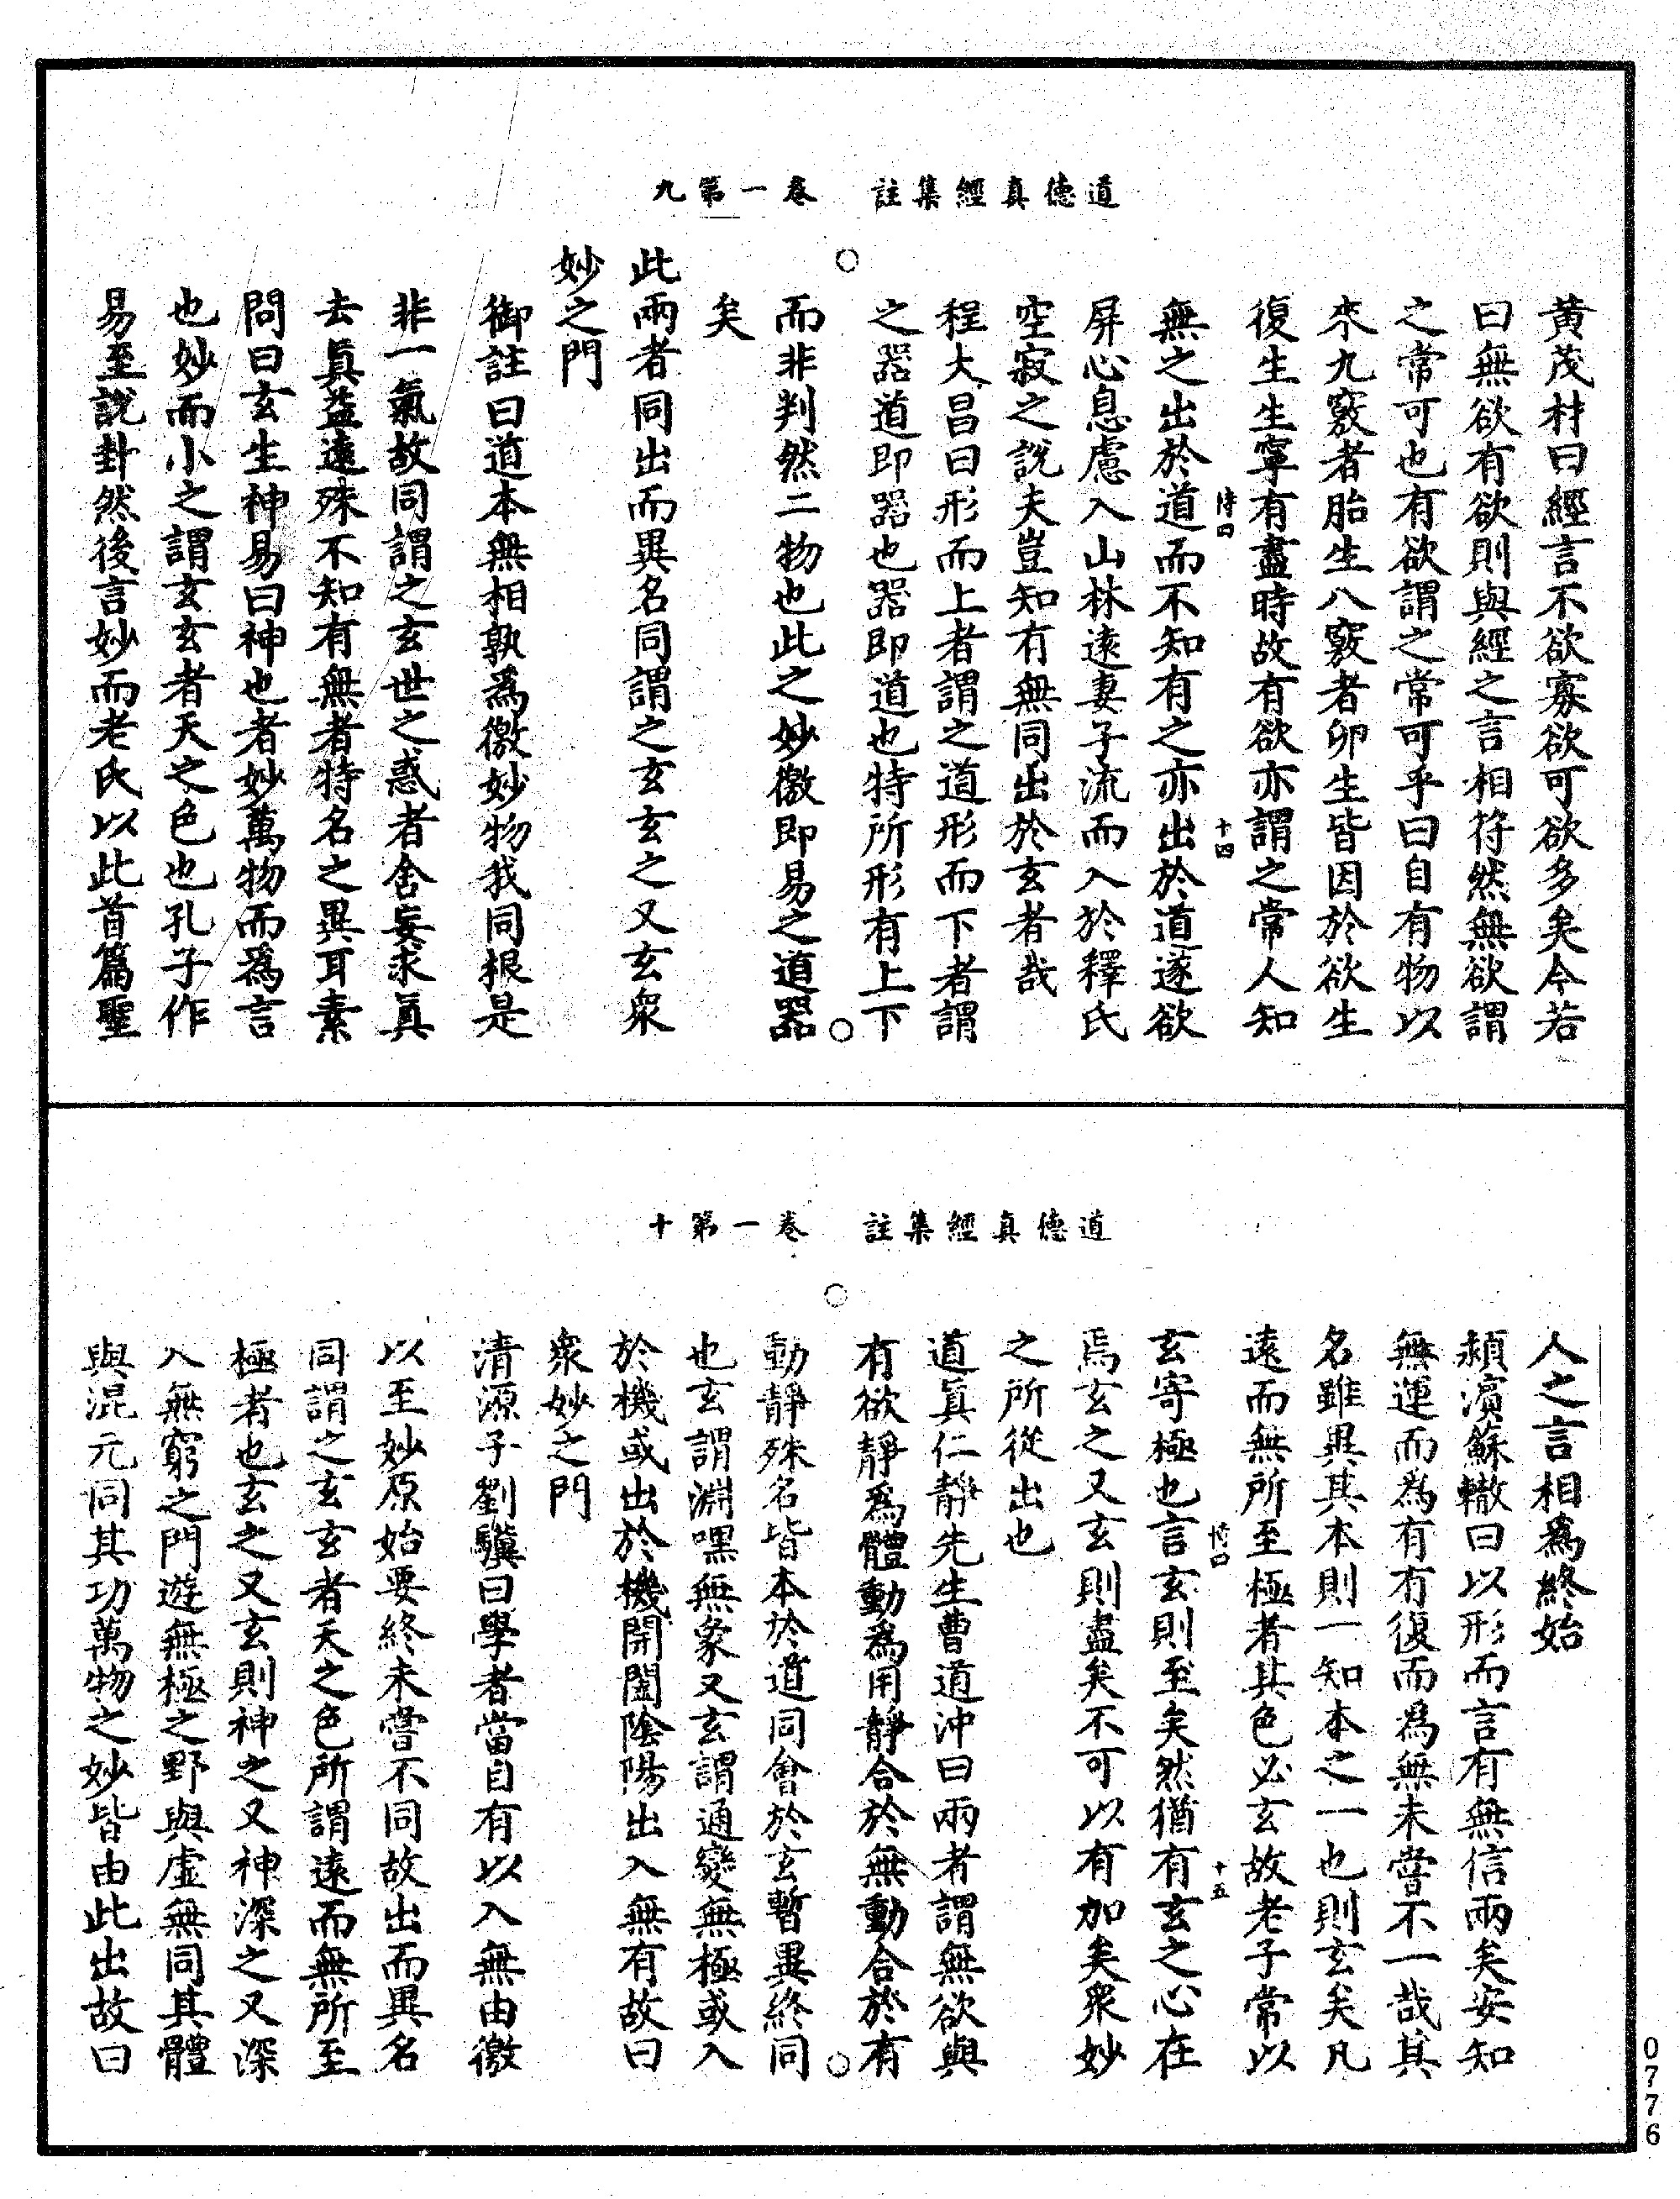 道德真經集註　卷一第九
黃茂材曰經言不欲寡欲可欲多矣今若
曰無欲有欲則與經之言相符然無欲謂
之常可也有欲謂之常可乎曰自有物以
來九竅者胎生八竅者卵生皆因於欲生
復生生寧有盡時故有欲亦謂之常人知
十四
無之出於道而不知有之亦出於道遂欲
屏心息慮入山林遠妻子流而入於釋氏
空寂之說夫豈知有無同出於玄者哉
程大昌曰形而上者謂之道形而下者謂
之器道即器也器即道也特所形有上下
而非判然二物也此之妙徼即易之道器
矣
此兩者同出而異名同謂之玄玄之又玄衆
妙之門
御註曰道本無相孰爲徼妙物我同根是
非一氣故同謂之玄世之惑者舍妄求眞
去眞益遠殊不知有無者特名之異耳素
問曰玄生神易曰神也者妙萬物而爲言
也妙而小之謂玄玄者天之色也孔子作
易至說卦然後言妙而老氏以此首篇聖
道德真經集註　卷一第十
人之言相爲終始
潁濱蘇轍曰以形而言有無信兩矣安知
無運而為有有復而爲無未嘗不一哉其
名雖異其本則一知本之一也則玄矣凡
遠而無所至極者其色必玄故老子常以
十五
玄寄極也言玄則至矣然猶有玄之心在
焉玄之又玄則盡矣不可以有加矣衆妙
之所從出也
道真仁靜先生曹道沖曰兩者謂無欲與
有欲靜爲體動為用靜合於無動合於有
動靜殊名皆本於道同會於玄暫異終同
也玄謂淵嘿無象又玄謂通變無極或入
於機或出於機開闔陰陽出入無有故曰
衆妙之門
清源子劉驥曰學者當自有以入無由徼
以至妙原始要終未嘗不同故出而異名
同謂之玄玄者天之色所謂遠而無所至
極者也玄之又玄則神之又神深之又深
入無窮之門遊無極之野與虛無同其體
與混元同其功萬物之妙皆由此出故曰
0776